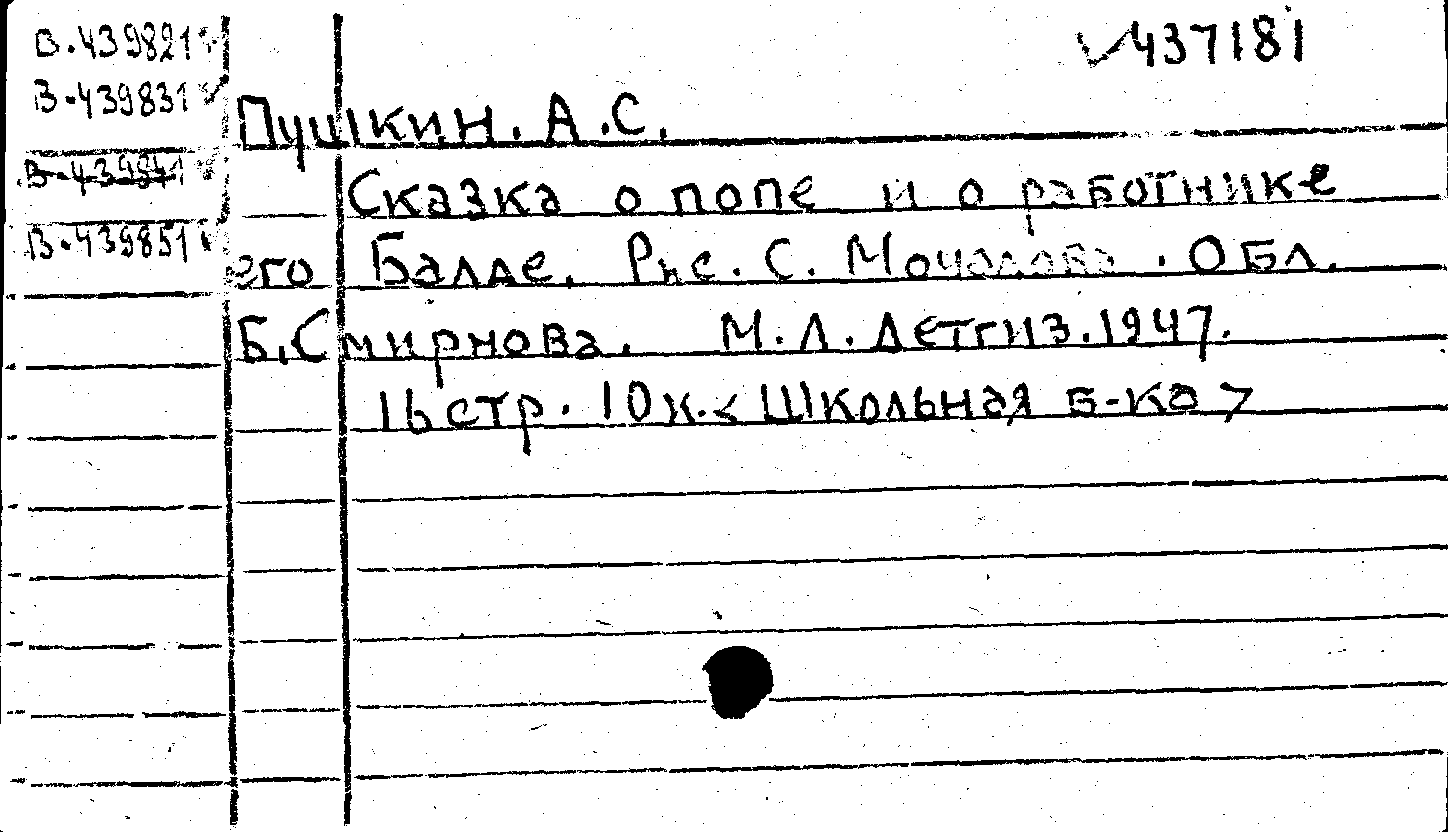 В.439821
В.439831
В.439841
В.439851
437181
Пушкин. А.С.
Сказка о попе и о работнике
его Балде. Рис. С. Мочалова. Обл.
Б.Смирнова. М.Л. Детгиз.1947.
16 стр. 10к. < Школьная Б-ка >